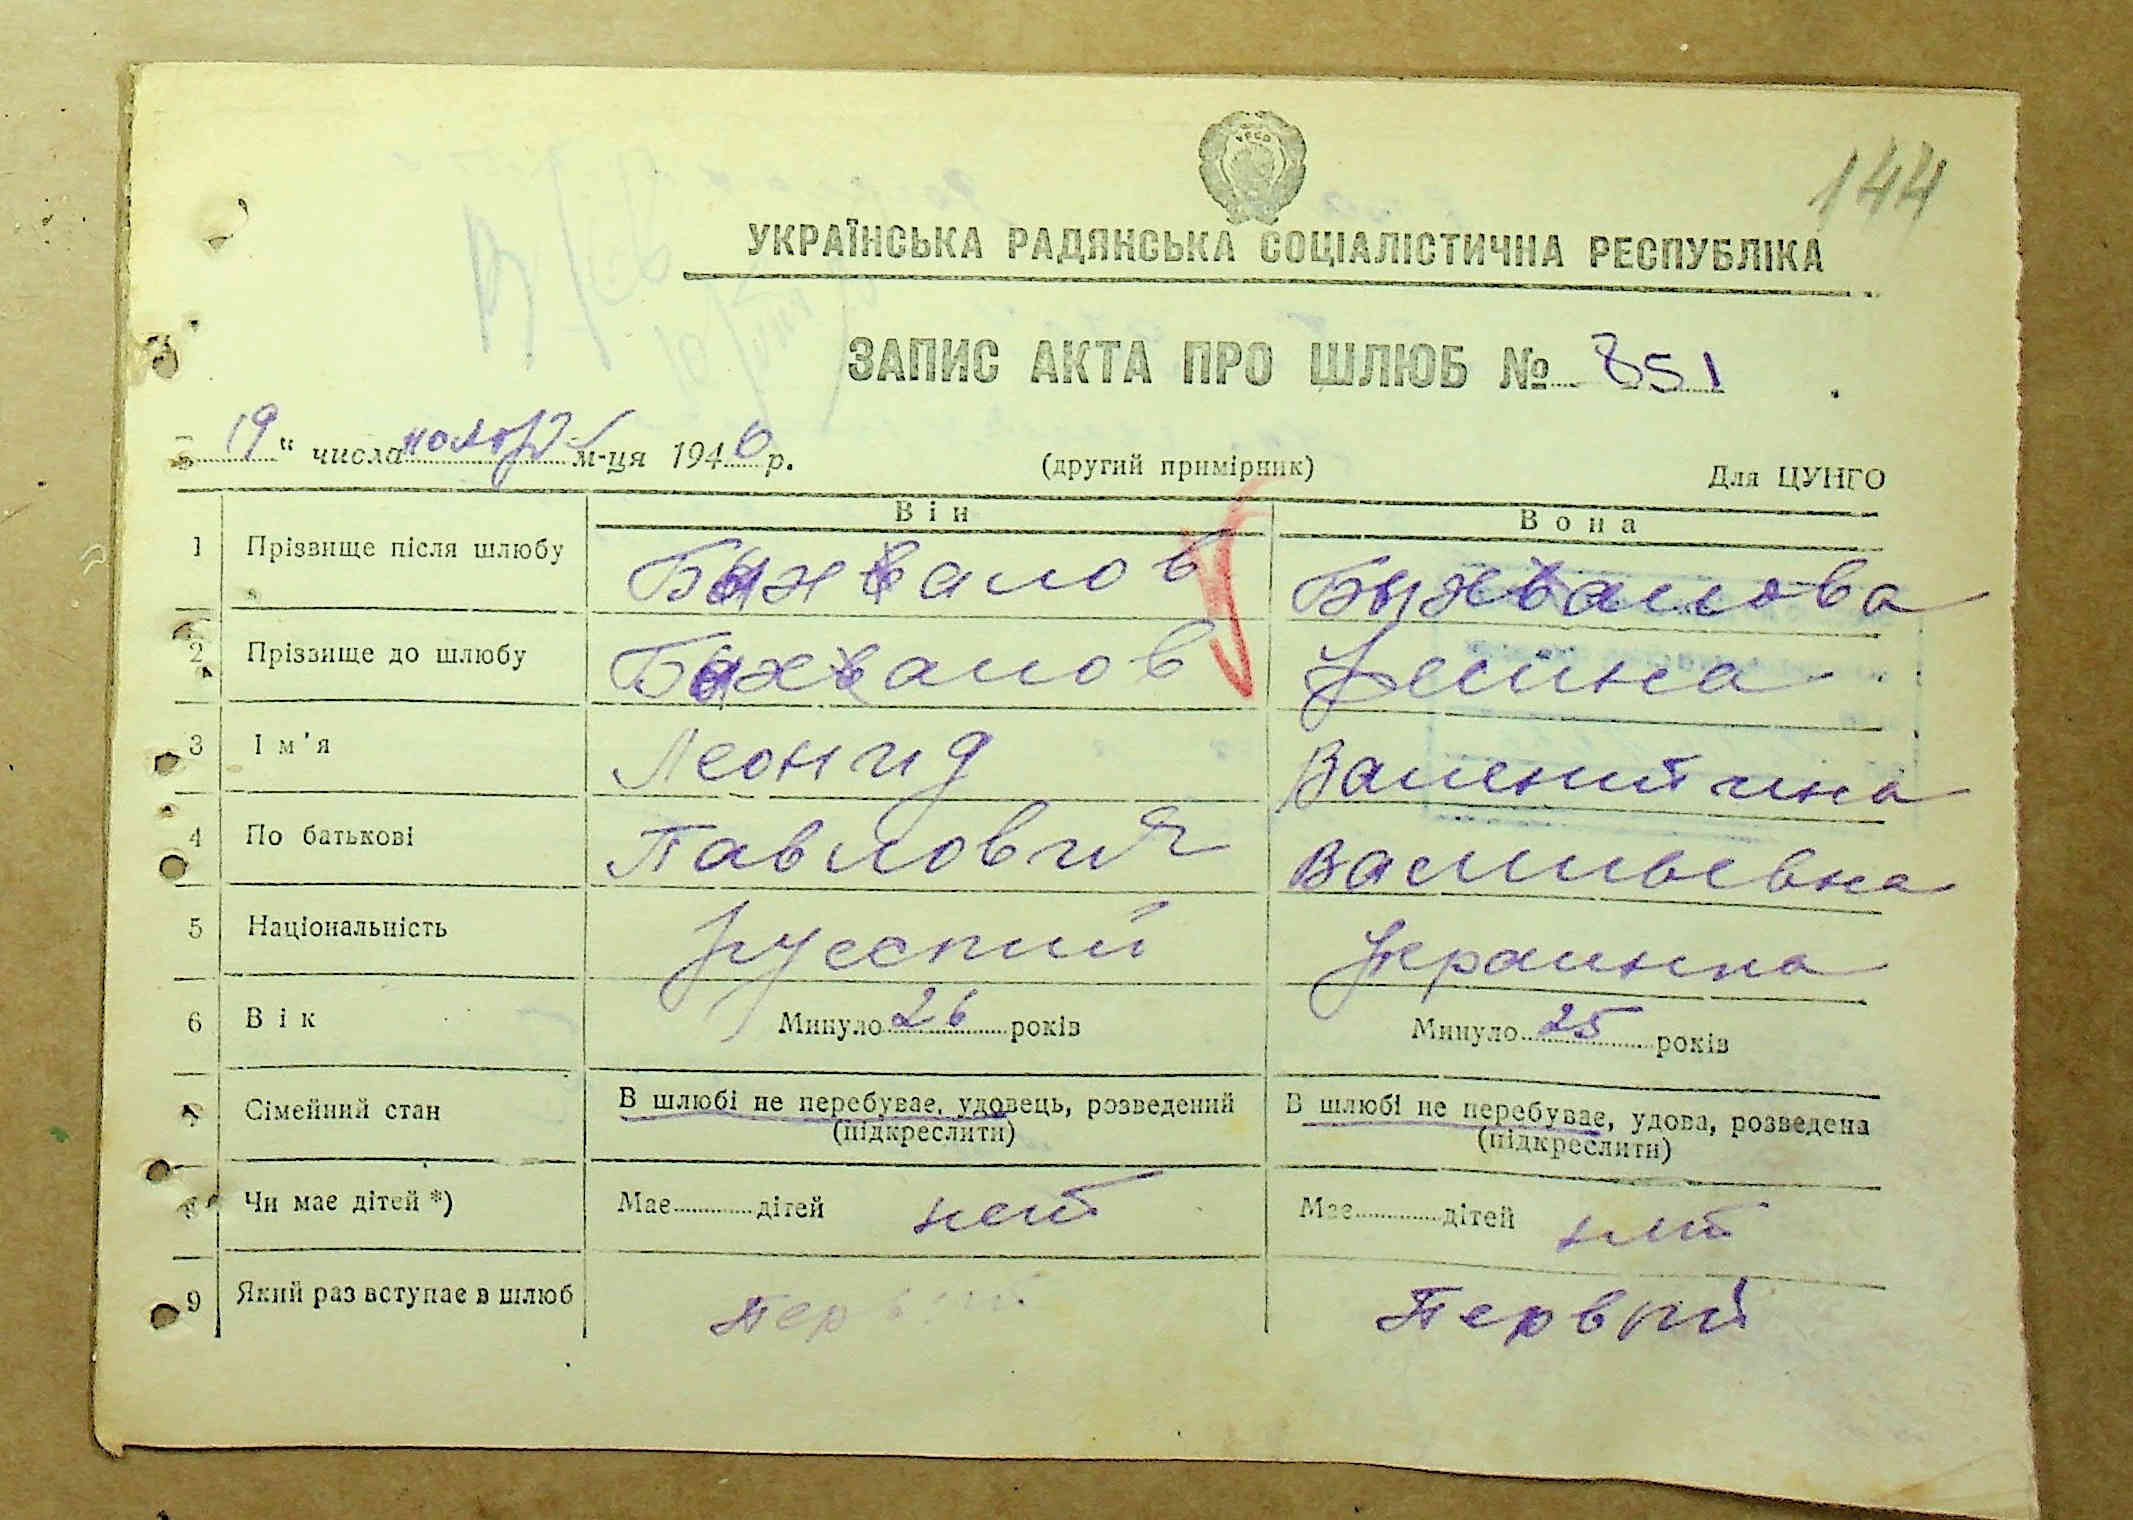 144
УКРАЇНСЬКА РАДЯНСЬКА СОЦІАЛІСТИЧНА РЕСПУБЛІКА
ЗАПИС АКТА ПРО ШЛЮБ № 851
19 " числа ноября м-ця 1946 р. (другий примірник) Для ЦУНГО
Він Вона
1 Прізвище після шлюбу Быхвалов Быхвалова
2 Прізвище до шлюбу Быхвалов
3 Ім'я Леонид Валентина
4 По батькові Павлович Васильевна
5 Національність русский Украинка
6 Вік Минуло 26 років Минуло 25 років
Сімейний стан В шлюбі не перебуває, удовець, розведений (підкреслити) В шлюбі не перебуває, удова, розведена (підкреслити)
8 Чи має дітей *) Має дітей нет Має дітей нет
9 Який раз вступає в шлюб первый Первый